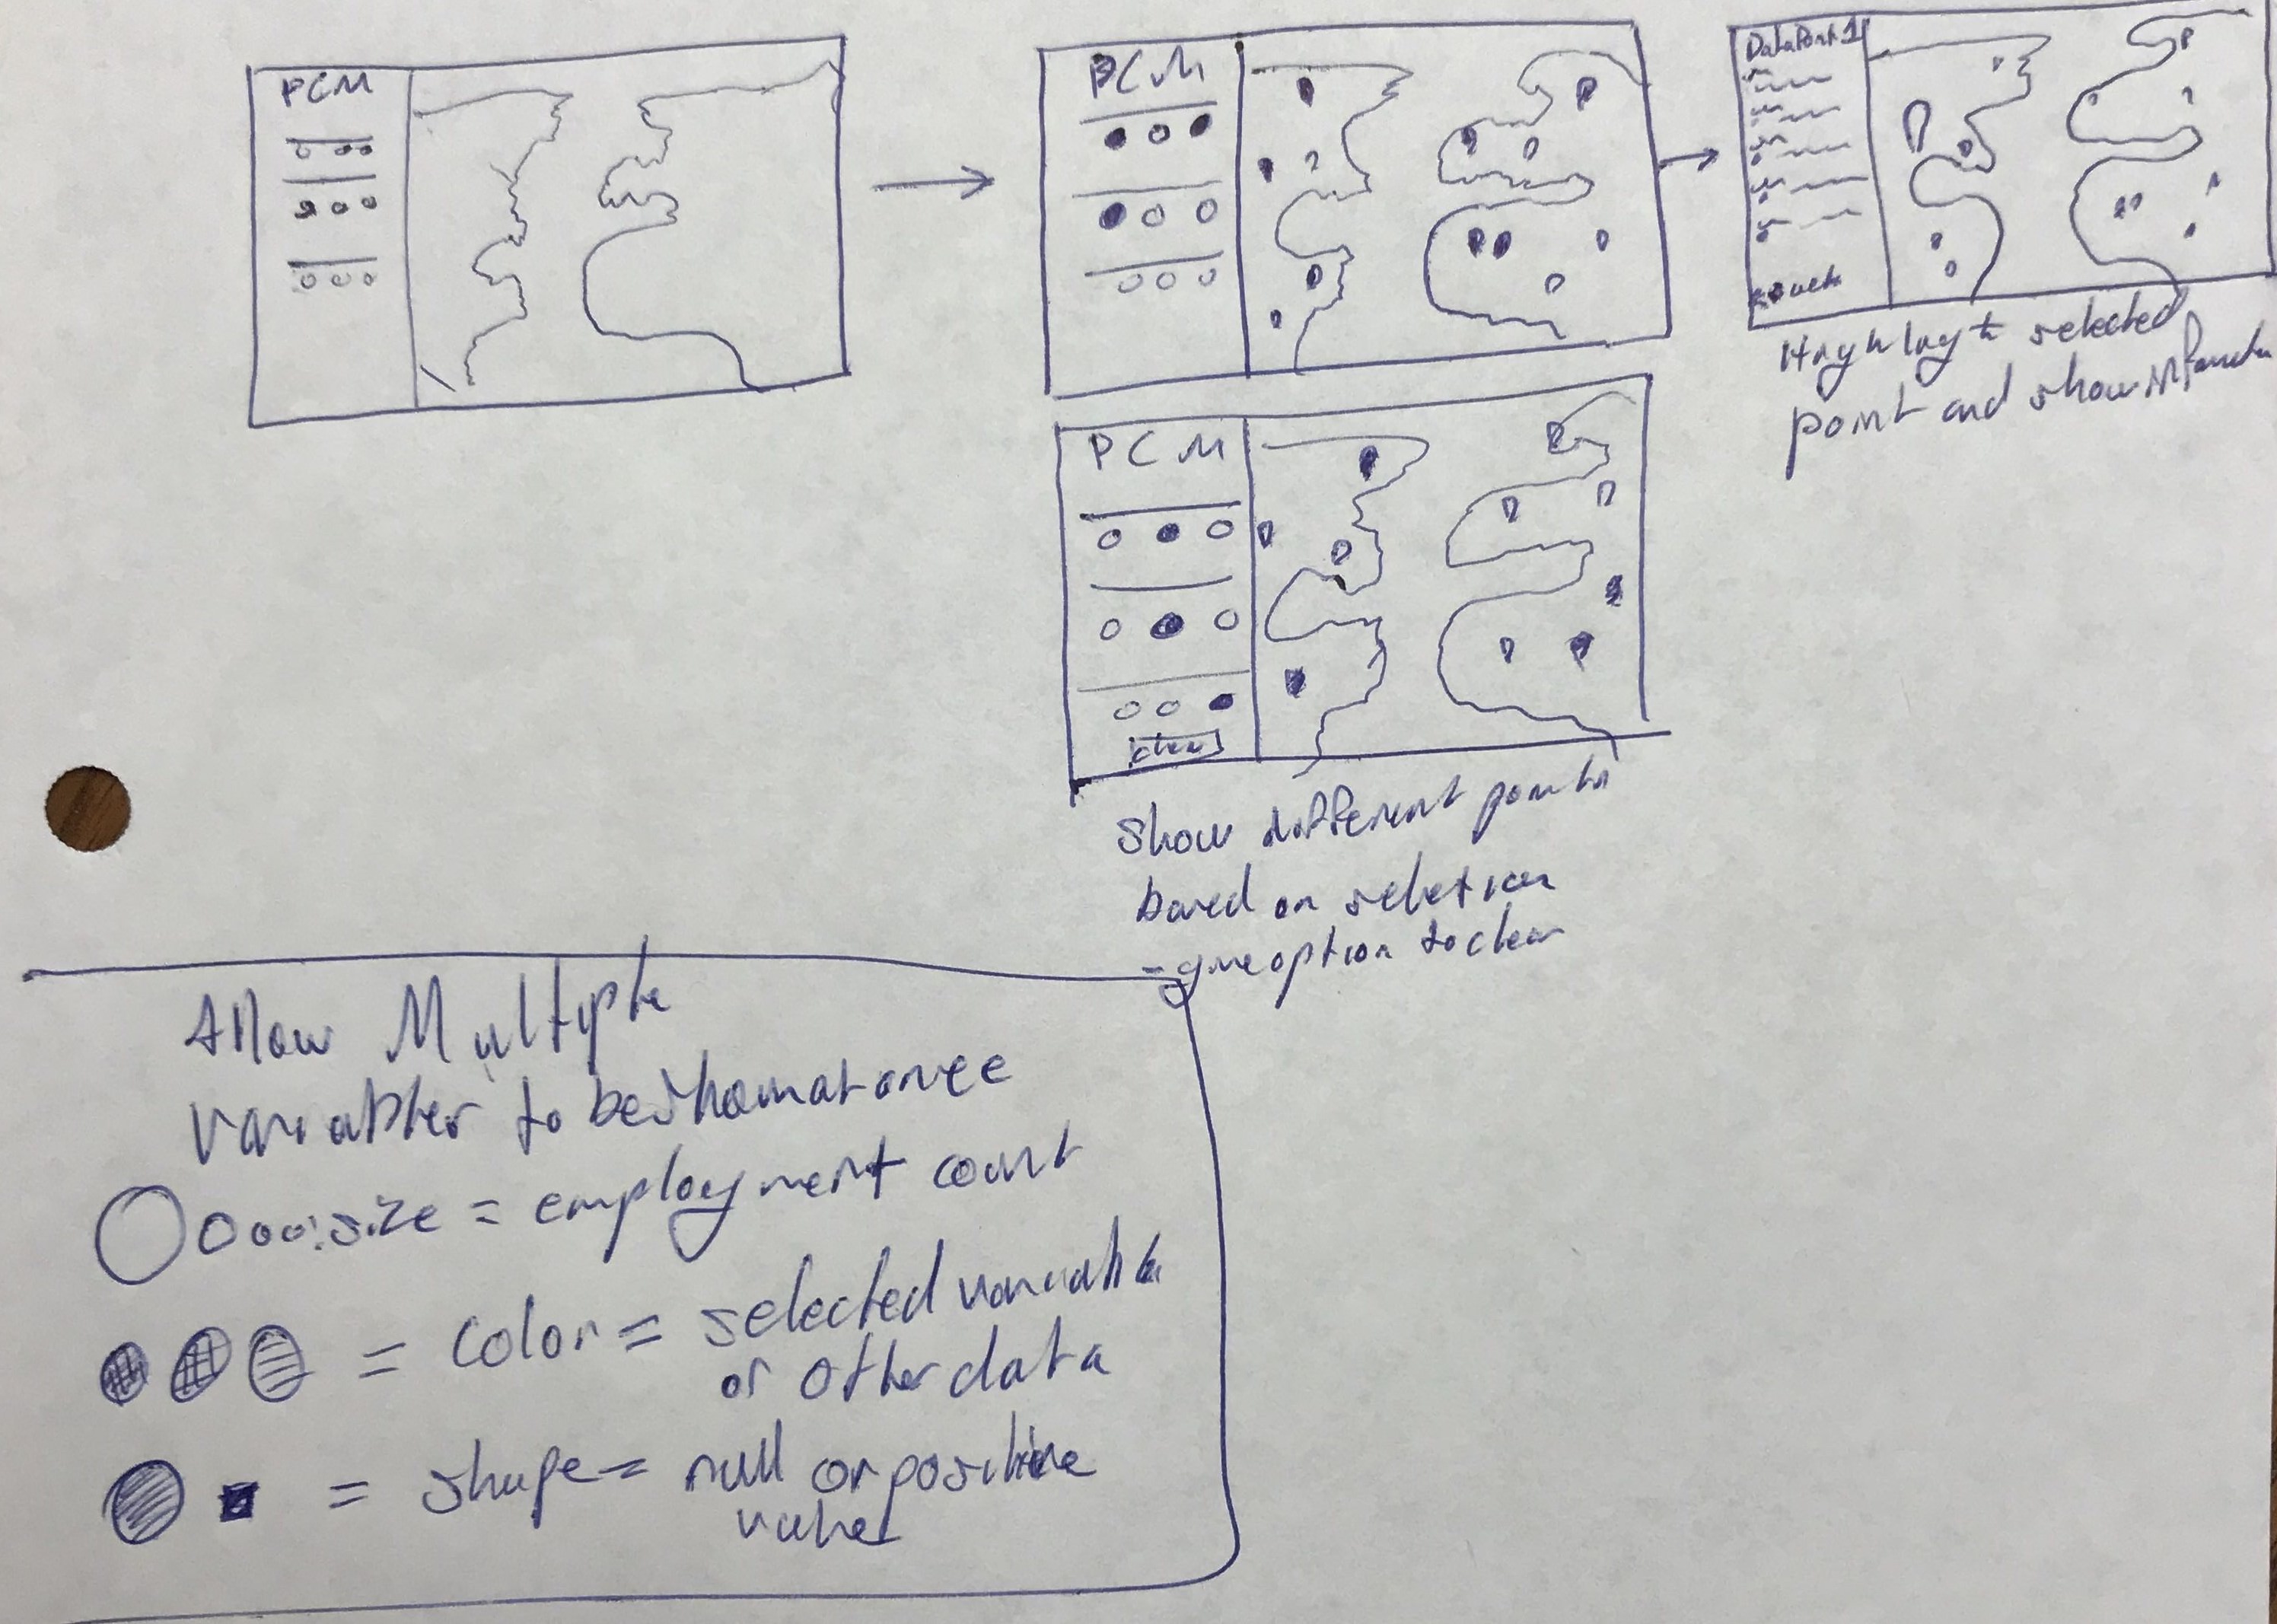 PCM
PCM
DataPoint 1
Highlight selected
point and show info
PCM
clear
Show different points
based on selection
- give option to clear
Allow Multiple
variables to be shown at once
size = employment count
= color = selected variable
or other data
= shape = null or positive
value